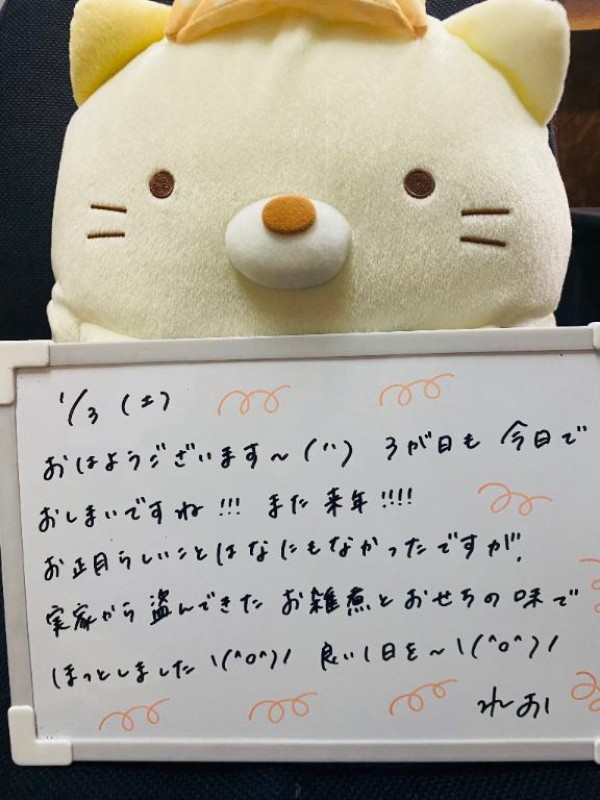 1/3 (土)
おはようございます〜(¨) 3が日も 今日で
おしまいですね!!! また 来年!!!!
お正月らしいことはなにもなかったですが、
実家から 盗んできた お雑煮とおせちの 味で
ほっとしました \(^o^)/ 良い1日を〜\(^o^)/
れおい